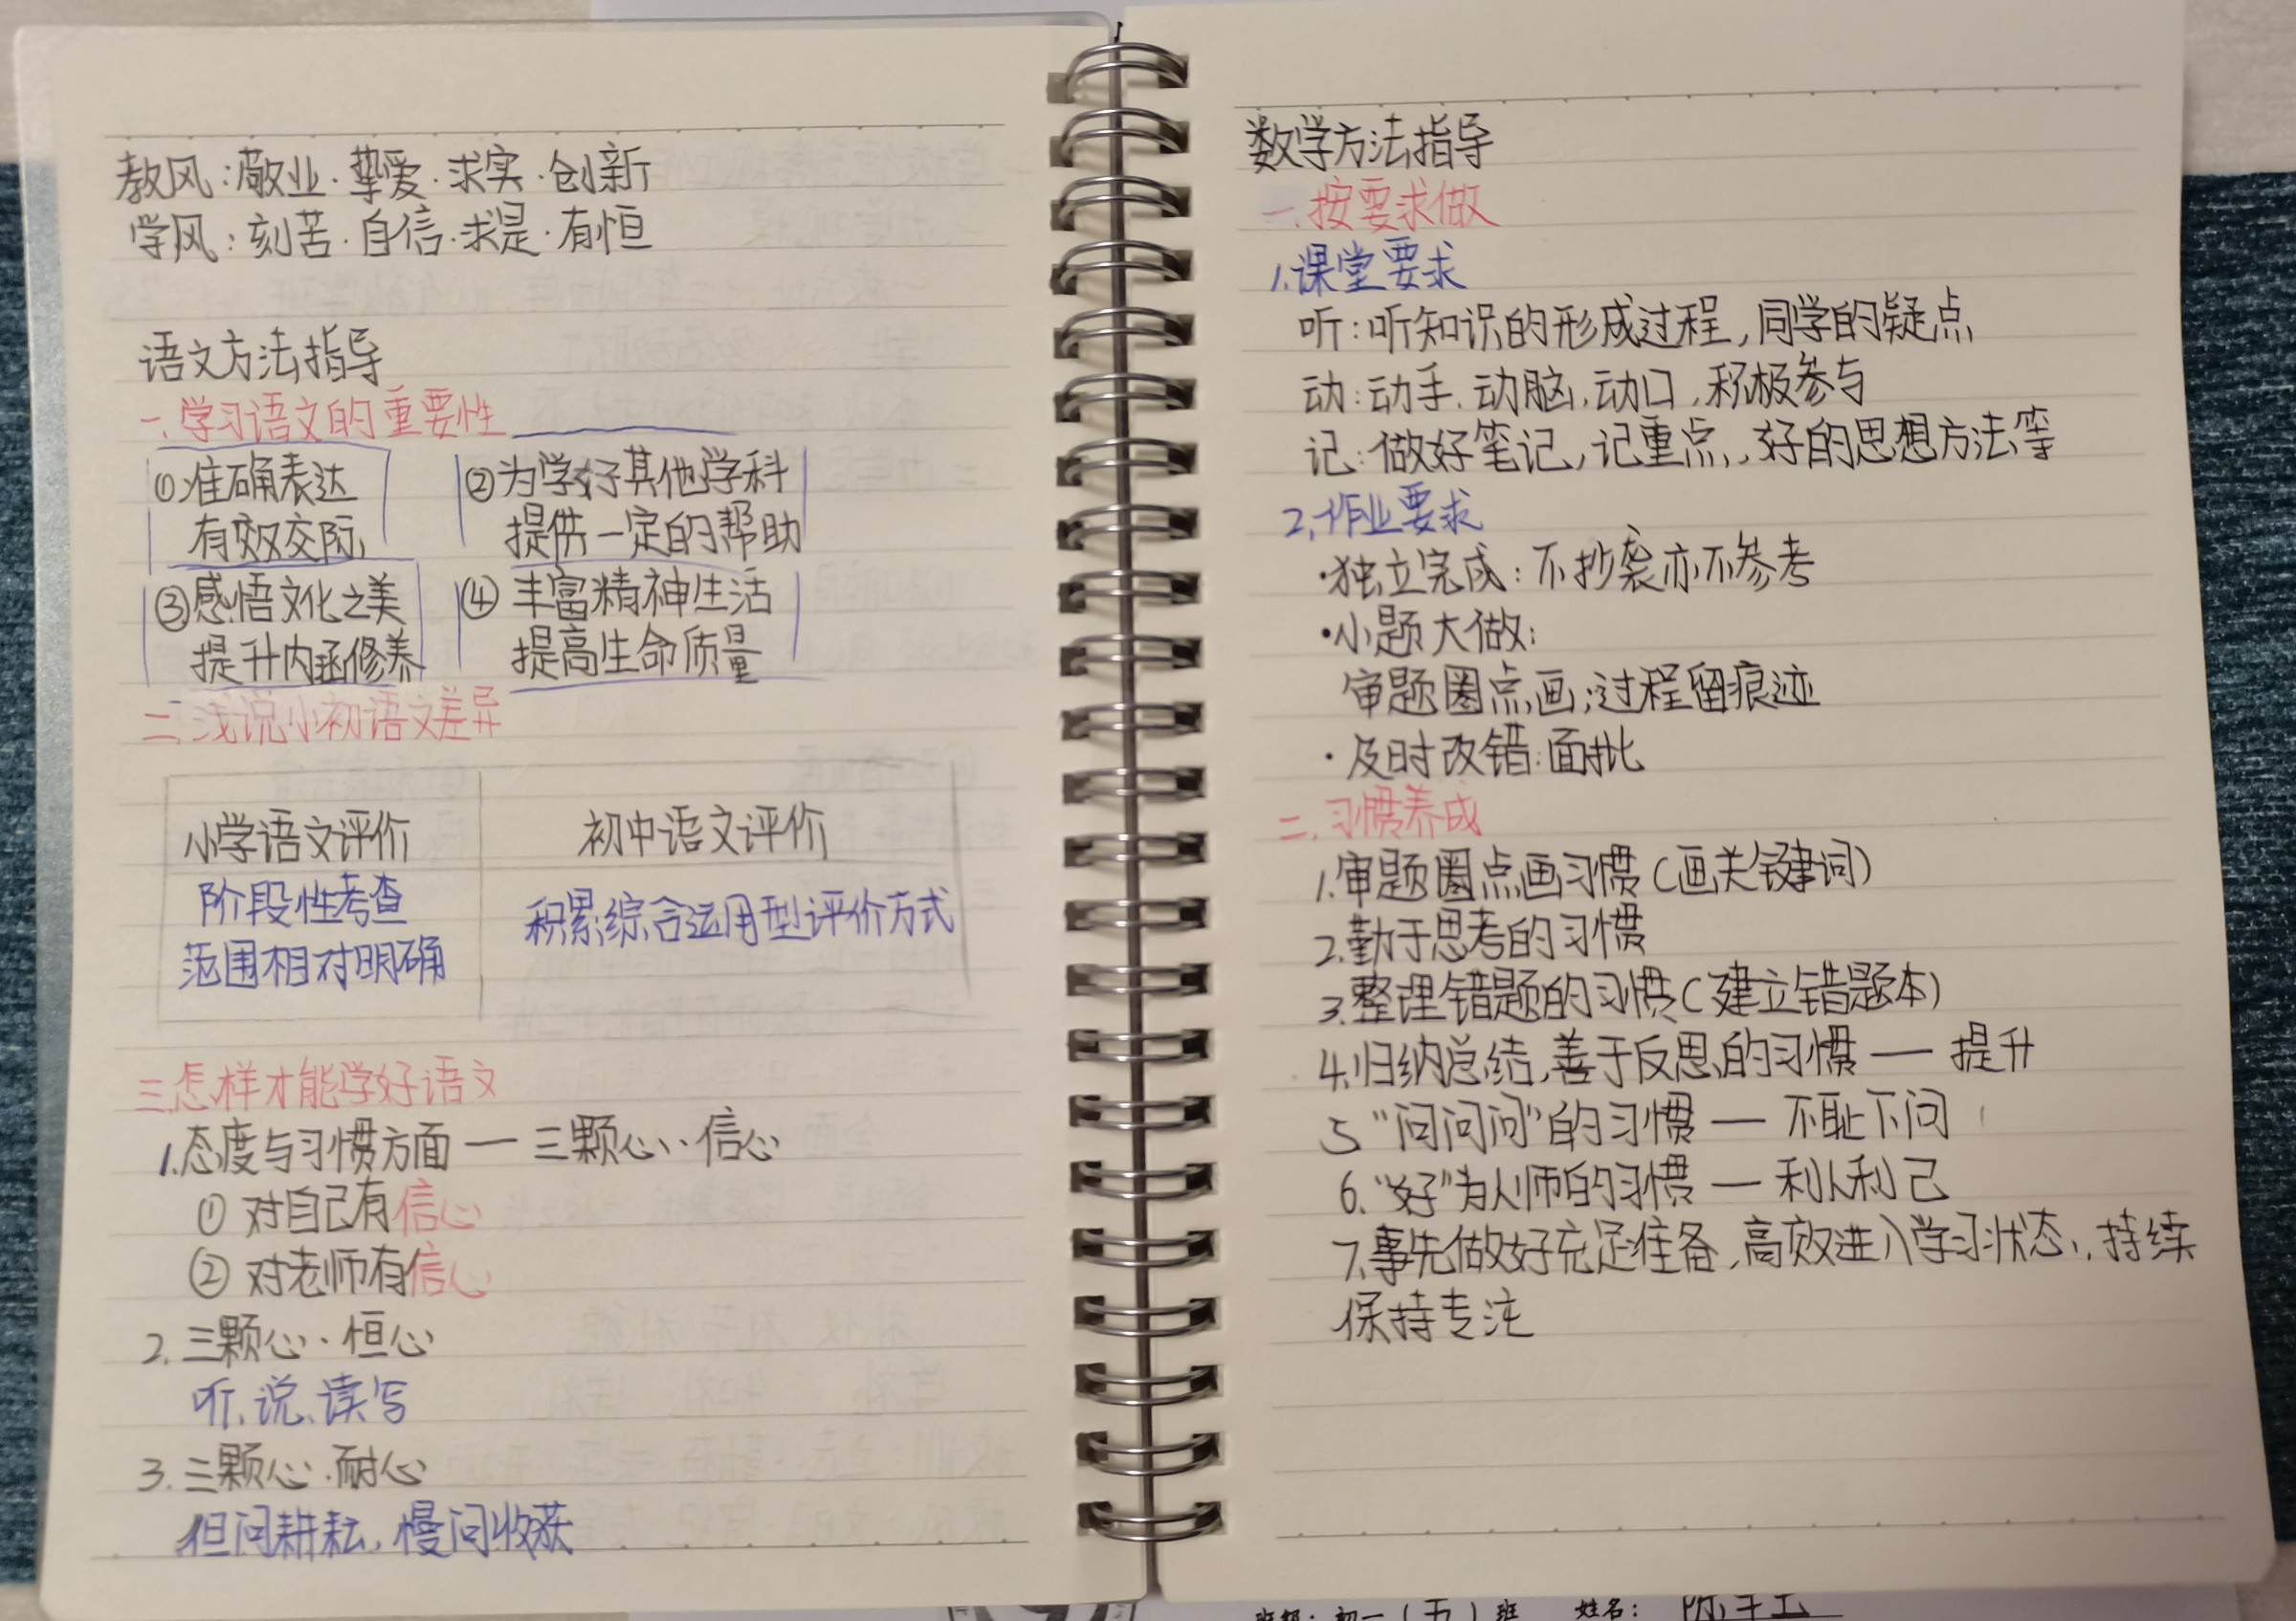 教风:敬业·挚爱·求实·创新
学风:刻苦·自信·求是·有恒
语文方法指导
一.学习语文的重要性
①准确表达
有效交际
②为学好其他学科
提供一定的帮助
③感悟文化之美
提升内涵修养
④丰富精神生活
提高生命质量
二.浅说小初语文差异
小学语文评价
初中语文评价
阶段性考查
范围相对明确
积累综合运用型评价方式
三.怎样才能学好语文
1.态度与习惯方面 — 三颗心·信心
① 对自己有信心
② 对老师有信心
2.三颗心·恒心
听、说、读写
3.三颗心·耐心
但问耕耘,慢问收获
数学方法指导
一.按要求做
1.课堂要求
听:听知识的形成过程,同学的疑点
动:动手.动脑,动口,积极参与
记:做好笔记,记重点,好的思想方法等
2.作业要求
·独立完成:不抄袭亦不参考
·小题大做:
审题圈点画;过程留痕迹
·及时改错:面批
二.习惯养成
1.审题圈点画习惯(画关键词)
2.勤于思考的习惯
3.整理错题的习惯(建立错题本)
4.归纳总结,善于反思的习惯 — 提升
5 "问问问"的习惯 — 不耻下问
6."好"为人师的习惯 — 利人利己
7.事先做好充足准备,高效进入学习状态,持续
保持专注
班级:初一(五)班 姓名: